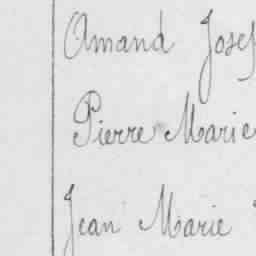 Amand Josef
Pierre Marie
Jean Marie